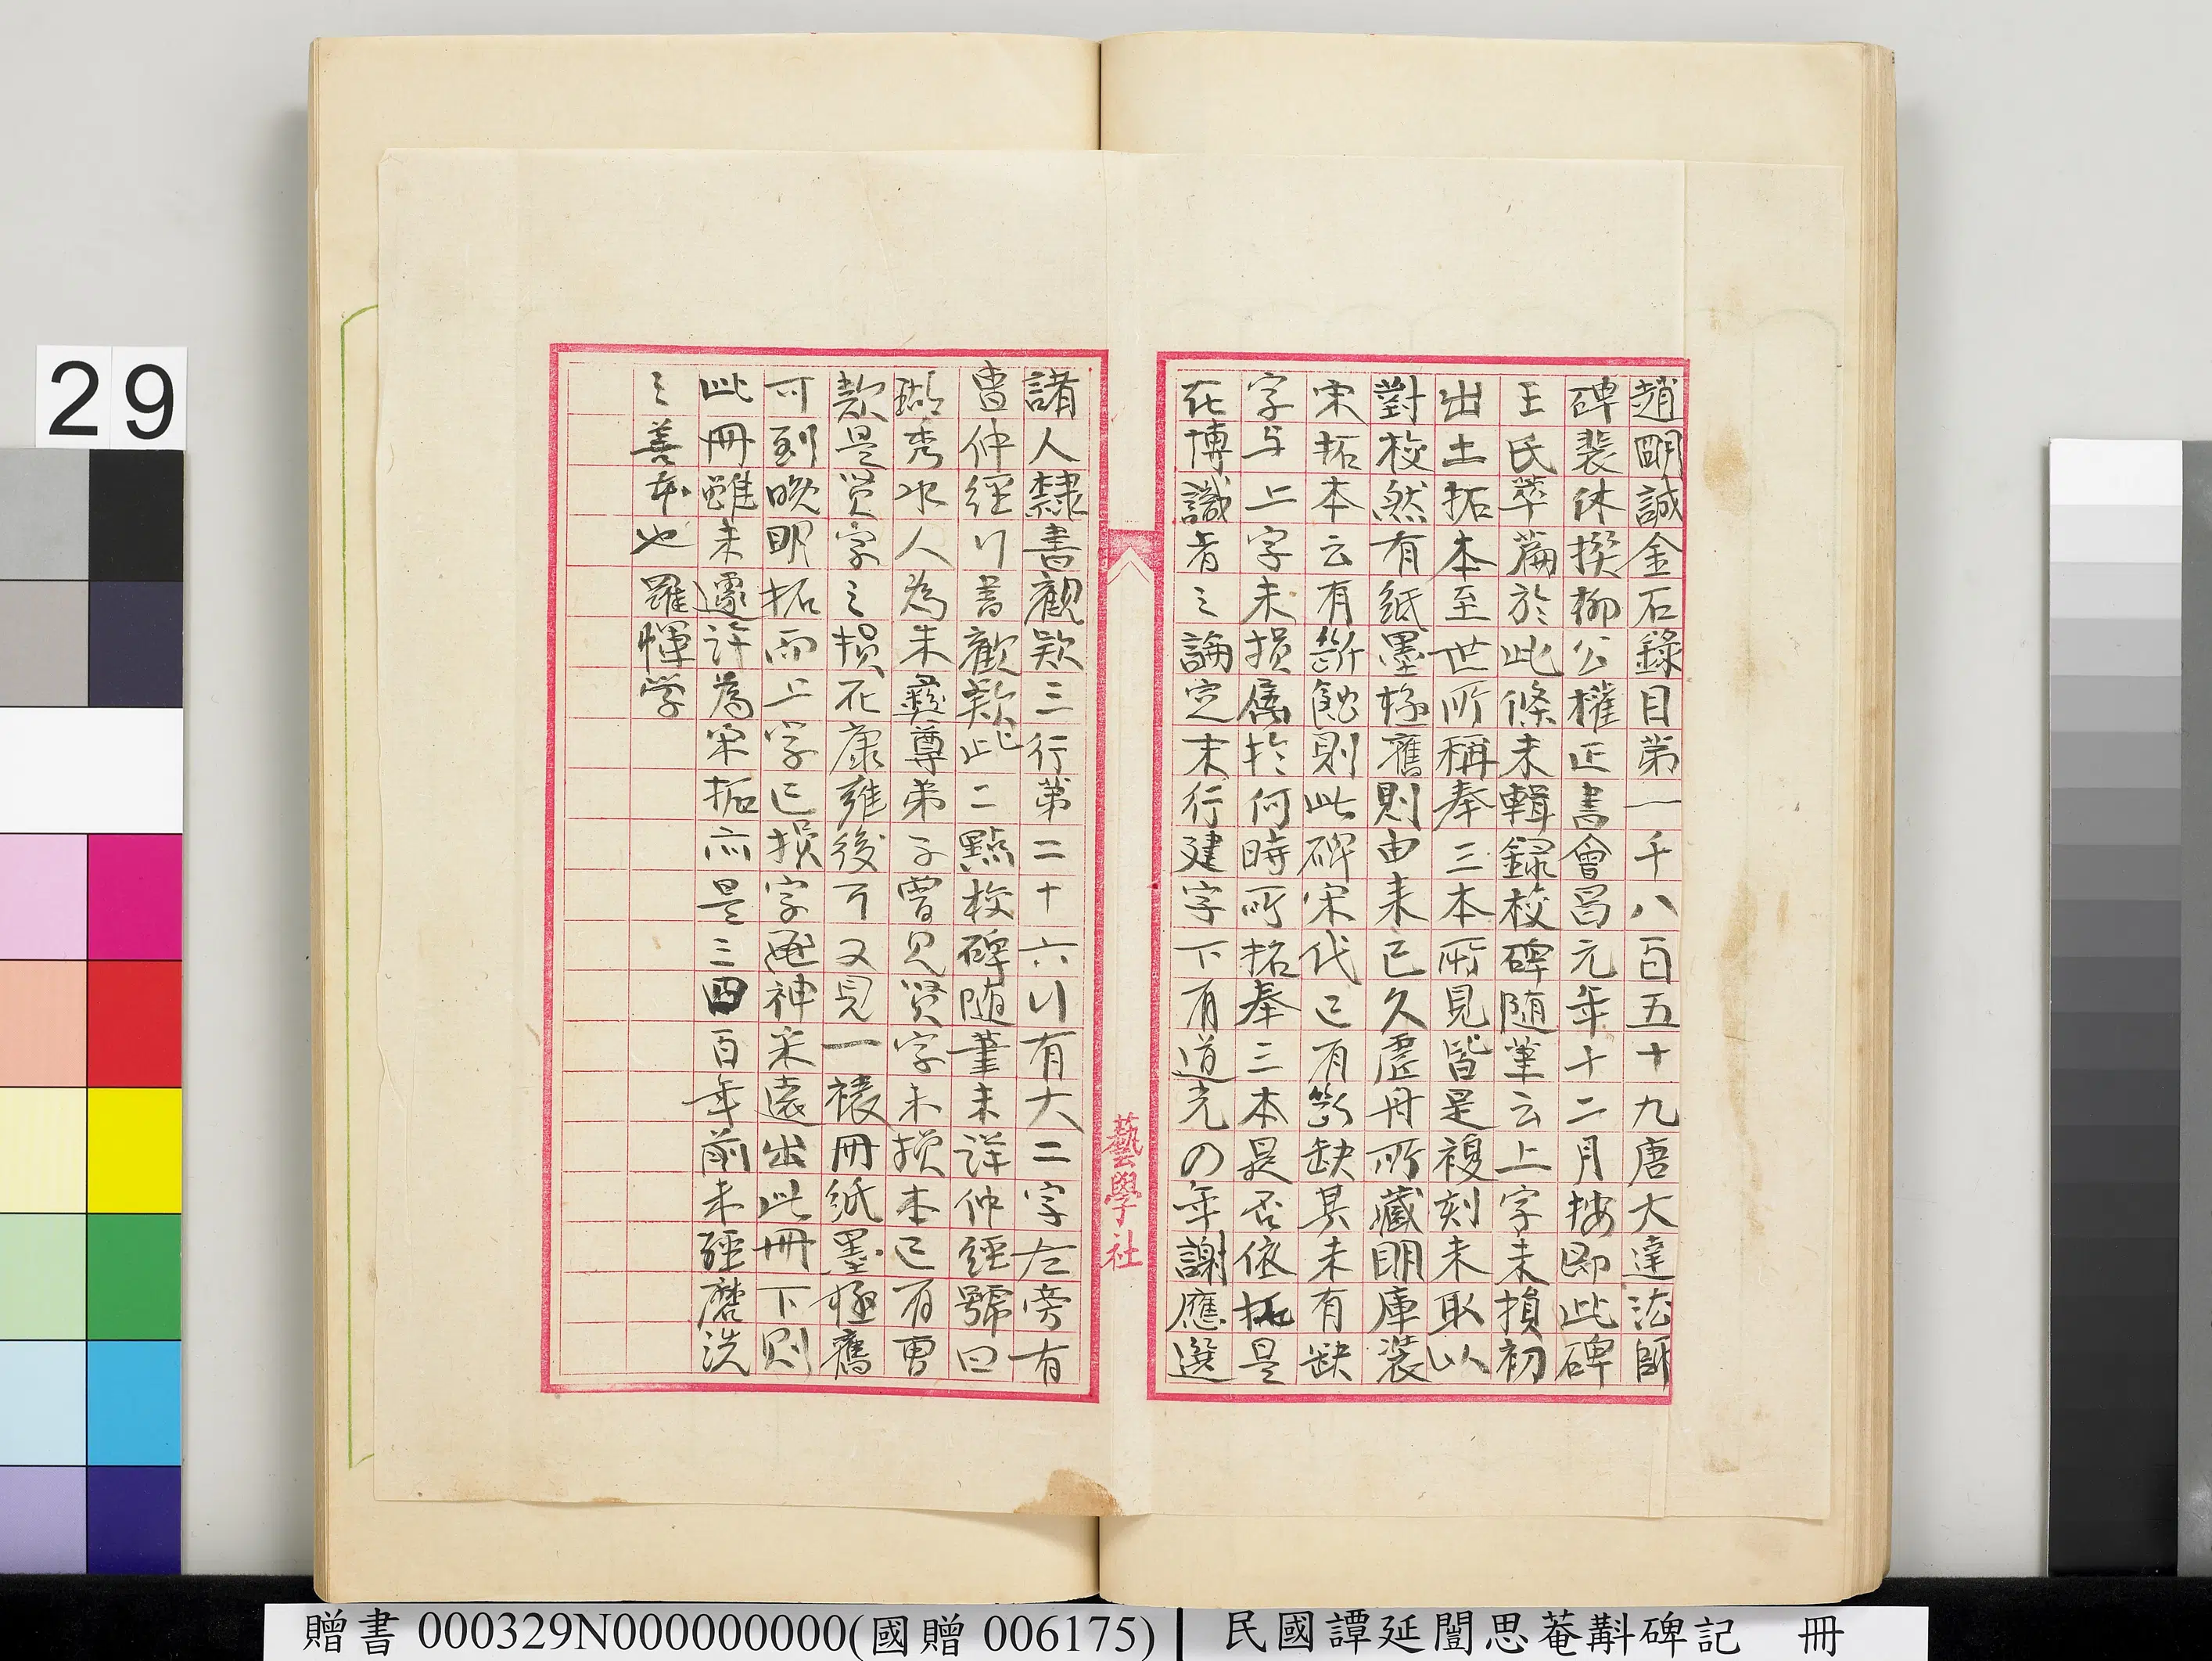 趙明誠金石錄目第一千八百五十九唐大達法師
碑裴休撰柳公權正書會昌元年十二月按即此碑
王氏萃篇於此條未輯録校碑随筆云上字未損初
出土拓本至世所稱奉三本所見皆是複刻未取以
對校然有紙墨極舊則由来已久虚舟所藏明庫裝
宋拓本云有斷蝕則此碑宋代已有斷缺其未有缺
字与上字未損屬於何時所拓奉三本是否依拓是
在博識者之論定末行建字下有道光の年謝應選
諸人隸書觀欵三行第二十六行有大二字左旁有
曹仲經行書觀欵此二點校碑随筆未詳仲經號曰
瑚秀水人為朱彝尊弟子曾見賢字未損本已有曹
款是賢字之損在康雍後可又見一裱冊紙墨極舊
可到晚明拓而上字已損字神采遠出此冊下則
此冊雖未遽許為宋拓亦是三四百年前未經磨洗
之善本也 羅惲学
藝學社
29
贈書 000329N000000000(國贈 006175)
民國譚延闓思菴斠碑記 冊